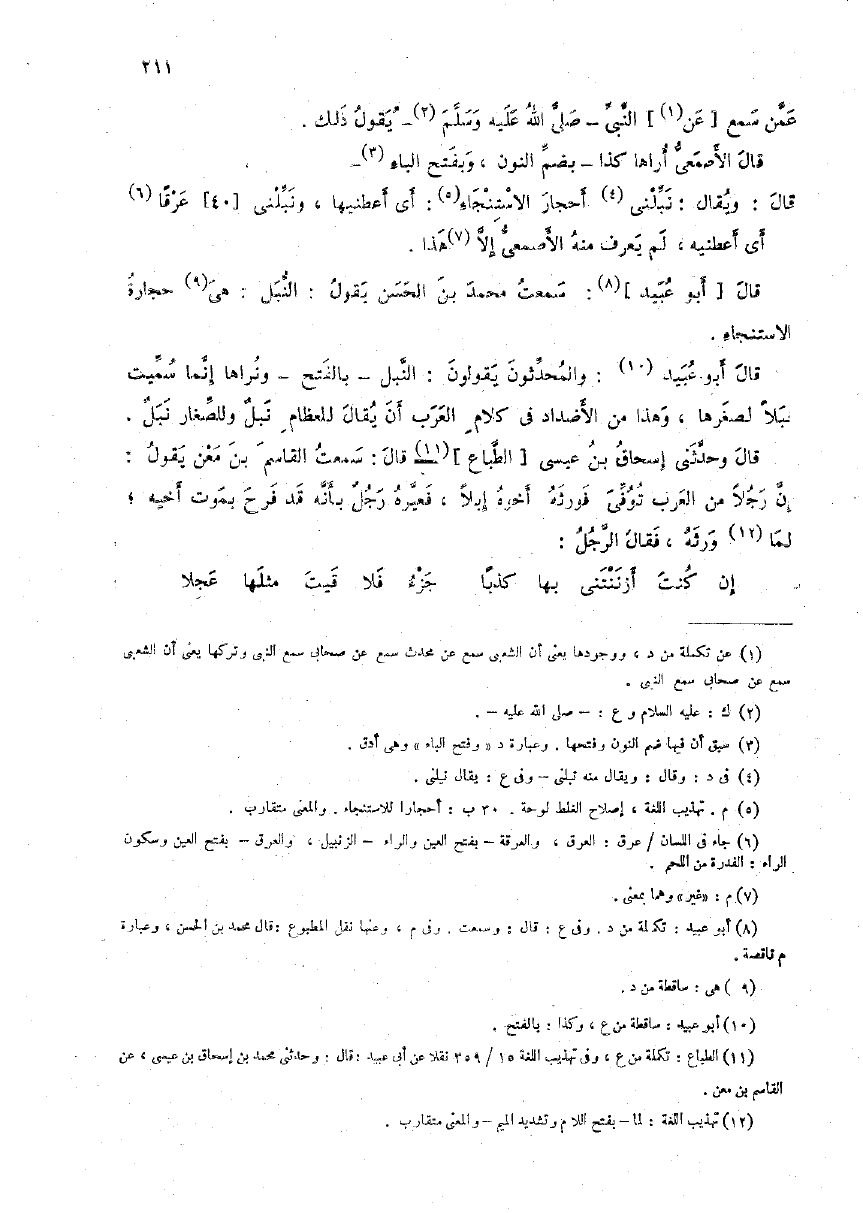 ٢١١
عَمَّن سَمع [ عَن(١) ] النَّبىِّ – صَلىَّ اللهُ عَلَيه وَسَلَّمَ (٢) – يَقولُ ذَلك .
قالَ الأَصمَعىُّ أُراها كذا – بضمِّ النون ، وَبفَتح الباء (٣) –
قالَ : ويُقال : نَبِّلْنى (٤) أَحجارَ الاسْتِنْجَاءِ(٥) : أَى أَعطنيها ، ونَبِّلْنى [٤٠] عَرْقًا (٦)
أَى أَعطنيه ، لَم يَعرف منهُ الأَصمعىُّ إلاَّ (٧)هَذا .
قالَ [ أَبو عُبَيد ](٨) : سَمعتُ محمدَ بنَ الحَسَن يَقولُ : النُّبَل : هىَ(٩) حجارةُ
الاستنجاءِ .
قالَ أَبو عُبَيد (١٠) : والمُحدِّثونَ يَقولونَ : النَّبل – بالفَتح – ونُراها إنَّما سُمِّيت
نَبَلاً لصغَرها ، وَهذا من الأَضداد فى كلامِ العَرَب أَنْ يُقالَ للعظامِ نَبلٌ وللصِّغار نَبَلٌ .
قالَ وحدَّثَنى إسحاقُ بنُ عيسى [ الطَّباع ](١١) قالَ : سَمعتُ القاسمَ بنَ مَعْن يَقولُ :
إنَّ رَجُلاً من العَرب تُوُفِّىَ فَورثَهُ أَخوهُ إبلاً ، فَعيَّرهُ رَجُلٌ بأَنَّه قَد فَرحَ بمَوت أَخيه ؛
لمَا (١٢) وَرثَهُ ، فَقالَ الرَّجُلُ :
إن كُنتَ أَزنَنْتَنى بها كذبًا جَزْءُ فَلا قَيتَ مثلَها عَجلا
(١) عن تكملة من د ، ووجودها يعنى أن الشعبى سمع عن محدث سمع عن صحابى سمع النبى وتركها يعنى أن الشعبى
سمع عن صحابى سمع النبى .
(٢) ك : عليه السلام و ع : – صلى الله عليه – .
(٣) سبق أن فيها ضم النون وفتحها . وعبارة د « وفتح الباء » وهى أدق .
(٤) فى د : وقال : ويقال منه نبلنى – وفى ع : يقال نبلنى .
(٥) م . تهذيب اللغة ، إصلاح الغلط لوحة . ٣٠ ب : أحجارا للاستنجاء . والمعنى متقارب .
(٦) جاء فى اللسان / عرق : العرق ، والعرقة – بفتح العين والراء – الزنبيل ، والعرق – بفتح العين وسكون
الراء : الفدرة من اللحم .
(٧) م : «غير» وهما بمعنى .
(٨) أبو عبيد : تكملة من د . وفى ع : قال : وسمعت . وفى م ، وعنها نقل المطبوع : قال محمد بن الحسن ، وعبارة
م ناقصة .
(٩ ) هى : ساقطة من د .
(١٠) أبو عبيد : ساقطة من ع ، وكذا : بالفتح .
(١١) الطباع : تكملة من ع ، وفى تهذيب اللغة ١٥ / ٣٥٩ نقلا عن أبى عبيد : قال : وحدثنى محمد بن إسحاق بن عيسى ، عن
القاسم بن معن .
(١٢) تهذيب اللغة : لمَّا – بفتح اللام وتشديد الميم – والمعنى متقارب .